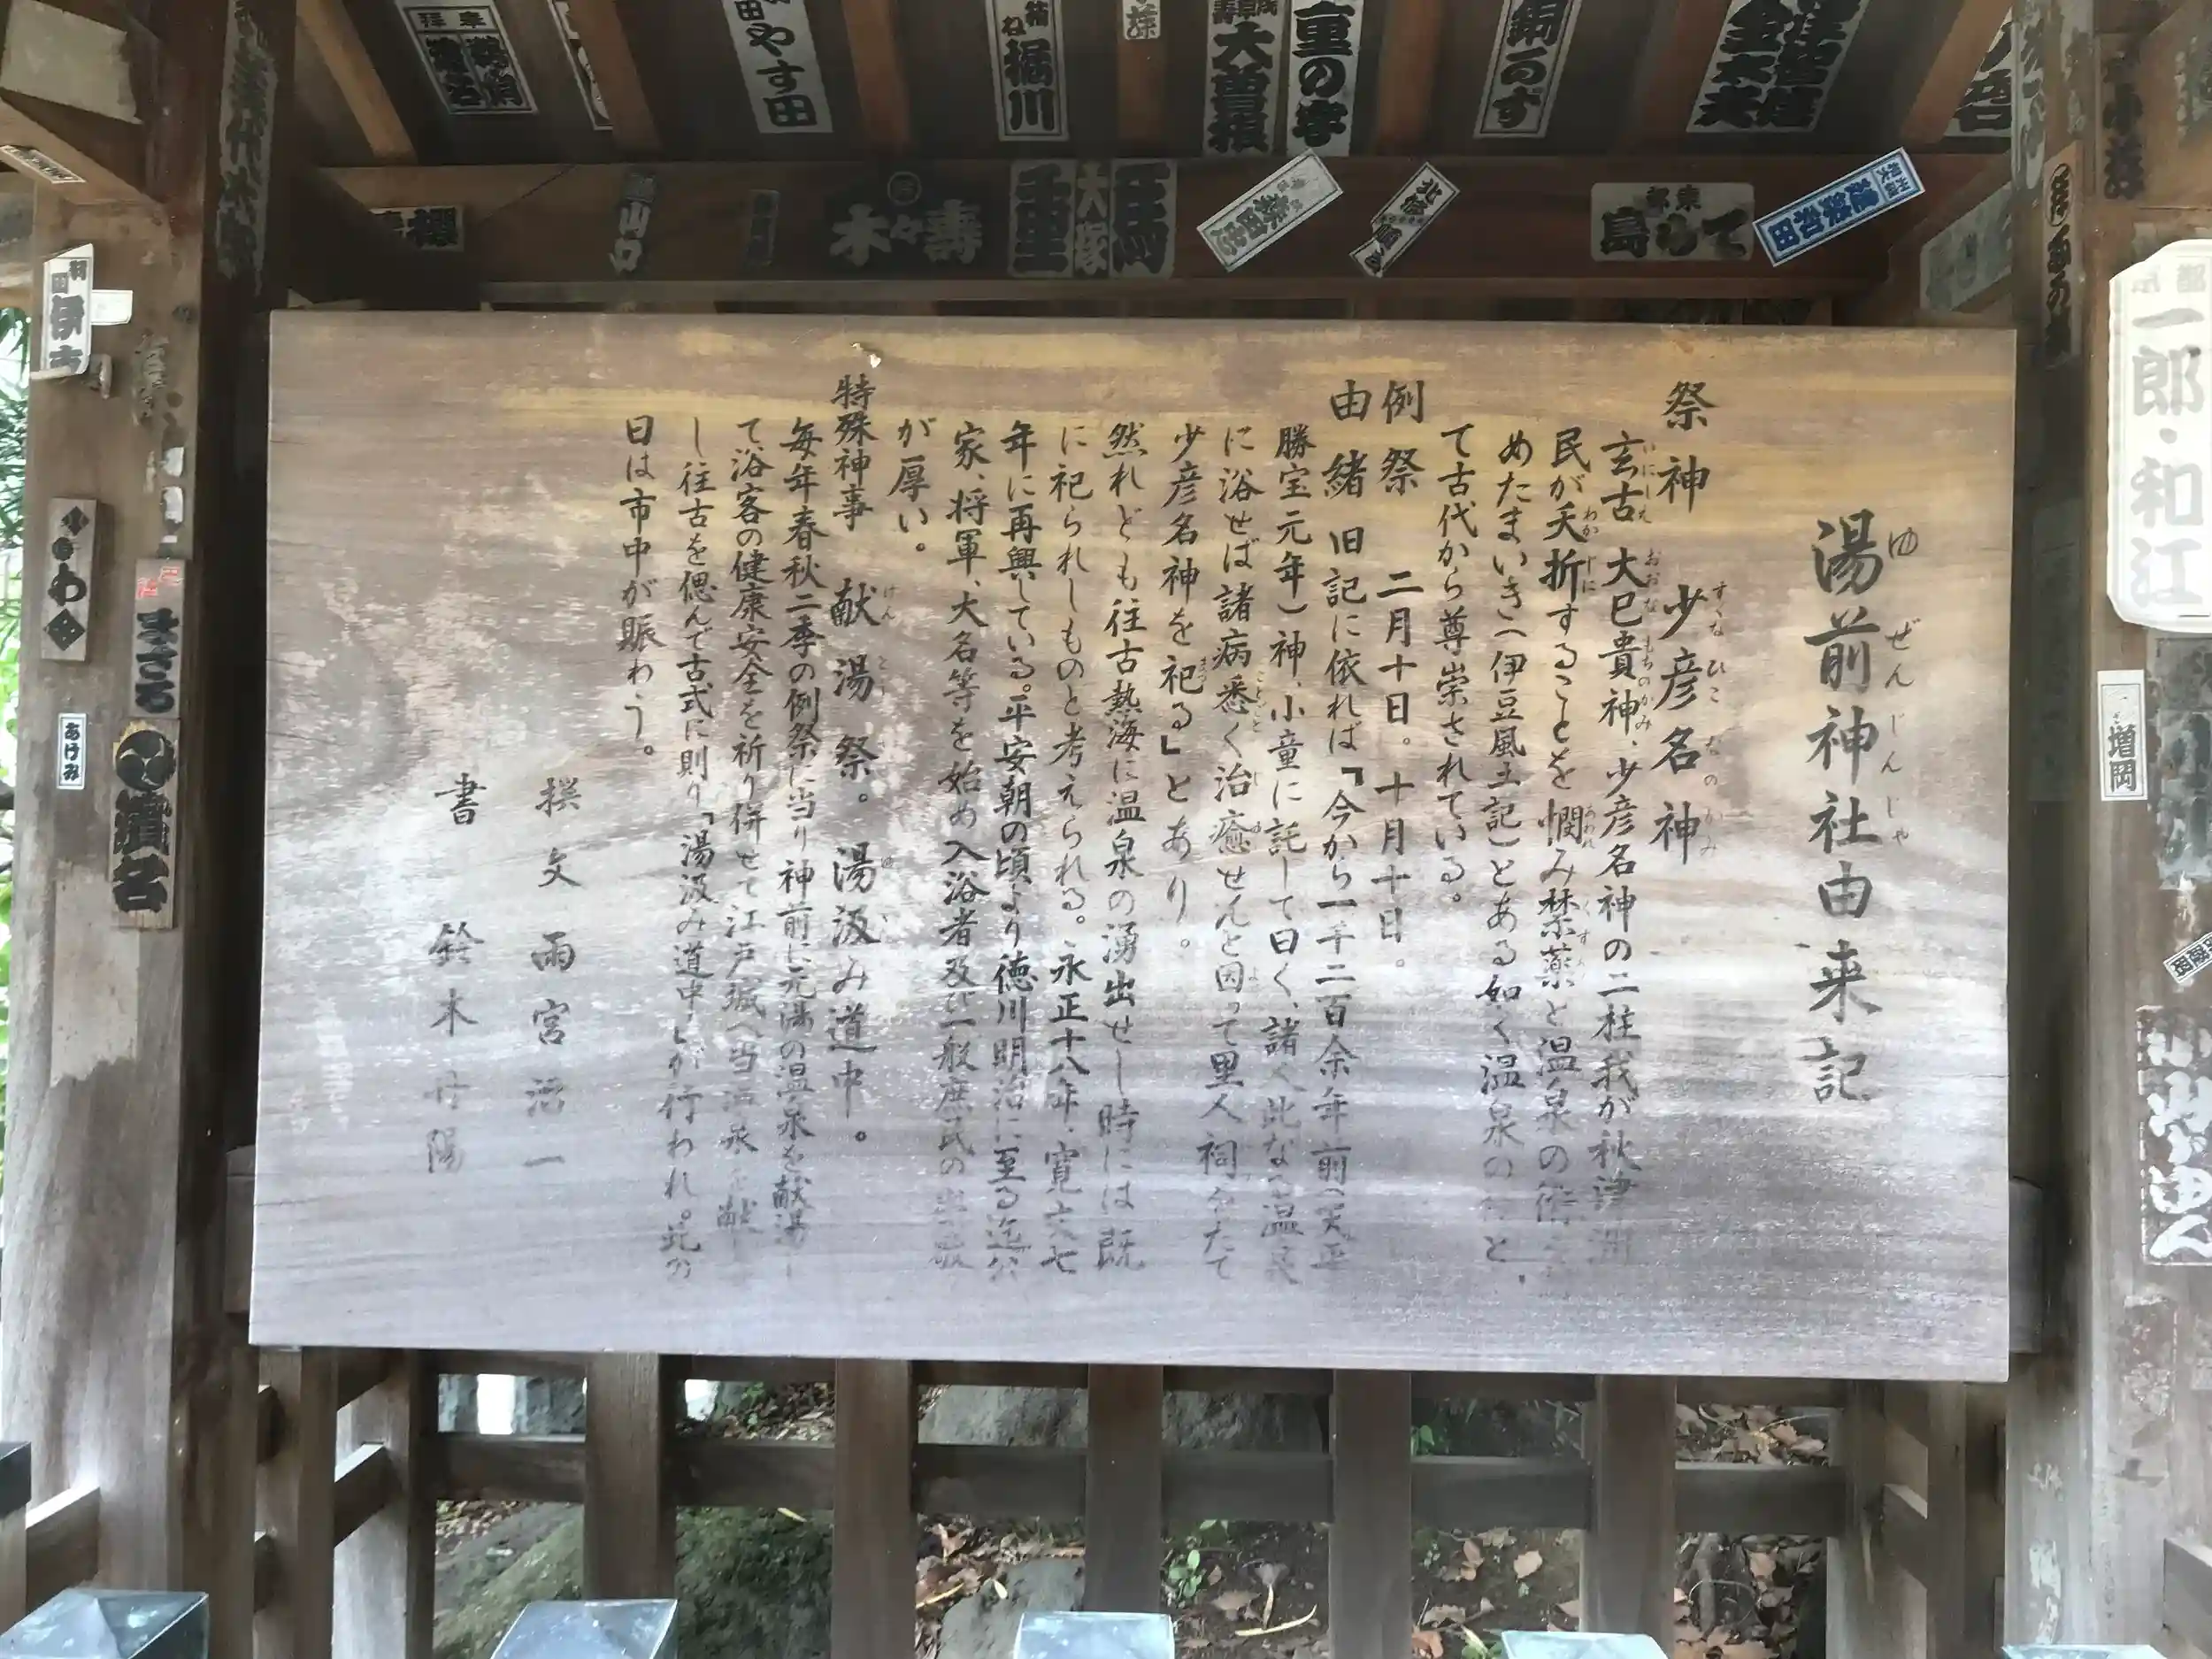 湯前神社由来記
ゆぜんじんじゃ
祭神 少彦名神
すくなひこなのかみ
玄古大巳貴神、少彦名神の二柱我が秋津洲
民が夭折することを憫み禁薬と温泉の術
めたまいき(伊豆風土記)とある如く温泉の
て古代から尊崇されている。
例祭 二月十日。十月十日。
由緒 旧記に依れば「今から一千二百余年前(天平
勝宝元年)神、小童に託して曰く、諸々此なる温泉
に浴せば諸病悉く治癒せんと因って里人祠をたて
少彦名神を祀る」とあり。
然れども往古熱海に温泉の湧出せし時には既
に祀られしものと考えられる。永正十八年、寛文七
年に再興している。平安朝の頃より徳川明治に至る迄公
家、将軍、大名等を始め入浴者及び一般庶民の崇敬
が厚い。
特殊神事 献湯祭。湯汲み道中。
毎年春秋二季の例祭に当り神前に元湯の温泉を献湯し
て浴客の健康安全を祈り併せて江戸城へ当温泉を献
し往古を偲んで古式に則り「湯汲み道中」が行われ。此の
日は市中が賑わう。
撰文 雨宮治一
書 鈴木丹陽
やす田
堀川
大曽根
重の字
銅のす
山口
櫻
木々壽
大塚
東都
てらも島
一郎・和江
増岡
あけみ
まさる